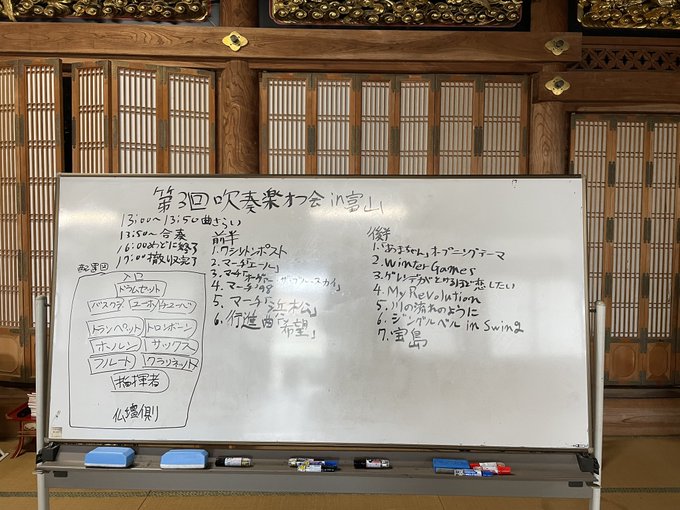 第3回吹奏楽オフ会 in 富山
13:00〜13:50 曲さらい
13:50〜 合奏
16:00めどに終了
17:00 撤収完了
前半
1.ワシントンポスト
2.マーチ「エール」
3.マーチ「オーヴァー・ザ・ブルースカイ」
4.マーチ'98
5.マーチ「浜松」
6.行進曲「希望」
後半
1.「あまちゃん」オープニングテーマ
2.Winter Games
3.ゲレンデがとけるほど恋したい
4.My Revolution
5.川の流れのように
6.ジングルベル in Swing
7.宝島
配置図
入口
ドラムセット
バスクラ ユーホ/チューバ
トランペット トロンボーン
ホルン サックス
フルート クラリネット
指揮者
仏壇側